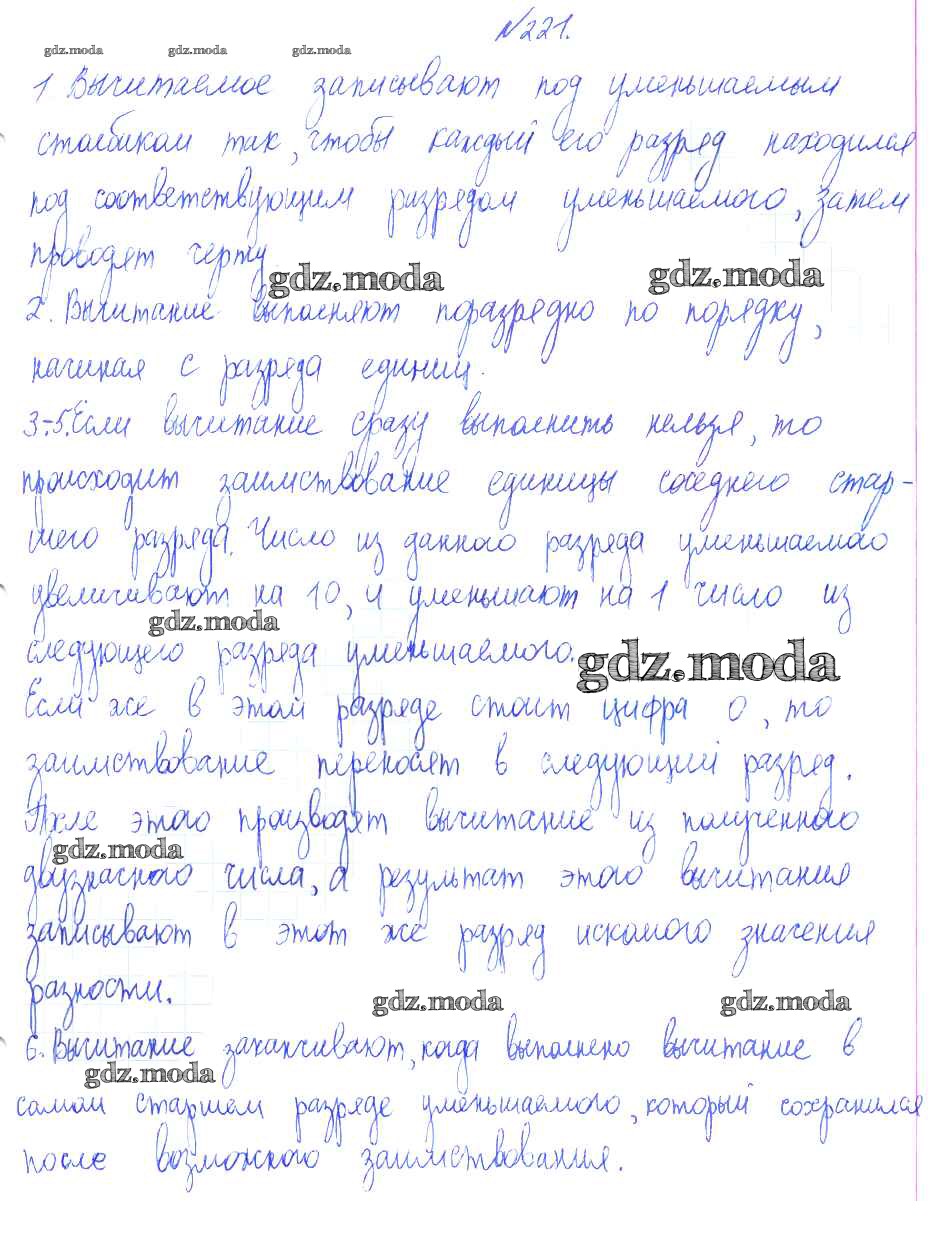 №221.
gdz.moda gdz.moda gdz.moda
1 Вычитаемое записывают под уменьшаемым
столбиком так, чтобы каждый его разряд находился
под соответствующим разрядом уменьшаемого, затем
проводят черту
gdz.moda gdz.moda
2. Вычитание выполняют поразрядно по порядку,
начиная с разряда единиц.
3-5. Если вычитание сразу выполнить нельзя, то
происходит заимствование единицы соседнего стар-
шего разряда. Число из данного разряда уменьшаемого
увеличивают на 10, и уменьшают на 1 число из
gdz.moda
следующего разряда уменьшаемого.
gdz.moda
Если же в этом разряде стоит цифра 0, то
заимствование переносят в следующий разряд.
После этого производят вычитание из полученного
gdz.moda
двузначного числа, а результат этого вычитания
записывают в этот же разряд искомого значения
разности.
gdz.moda gdz.moda
6. Вычитание заканчивают, когда выполнено вычитание в
gdz.moda
самом старшем разряде уменьшаемого, который сохранился
после возможного заимствования.